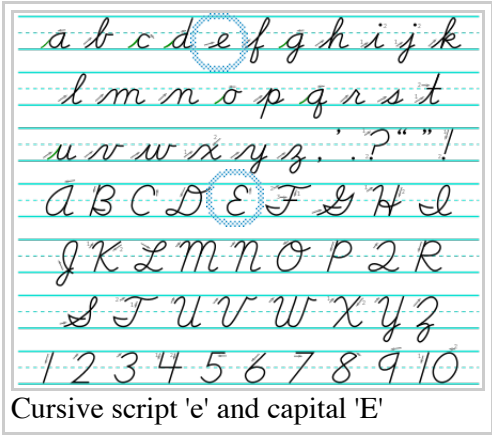 a b c d e f g h i j k
l m n o p q r s t
u v w x y z , ' . ? “ ” !
A B C D E F G H I
J K L M N O P Q R
S T U V W X Y Z
1 2 3 4 5 6 7 8 9 10
Cursive script 'e' and capital 'E'